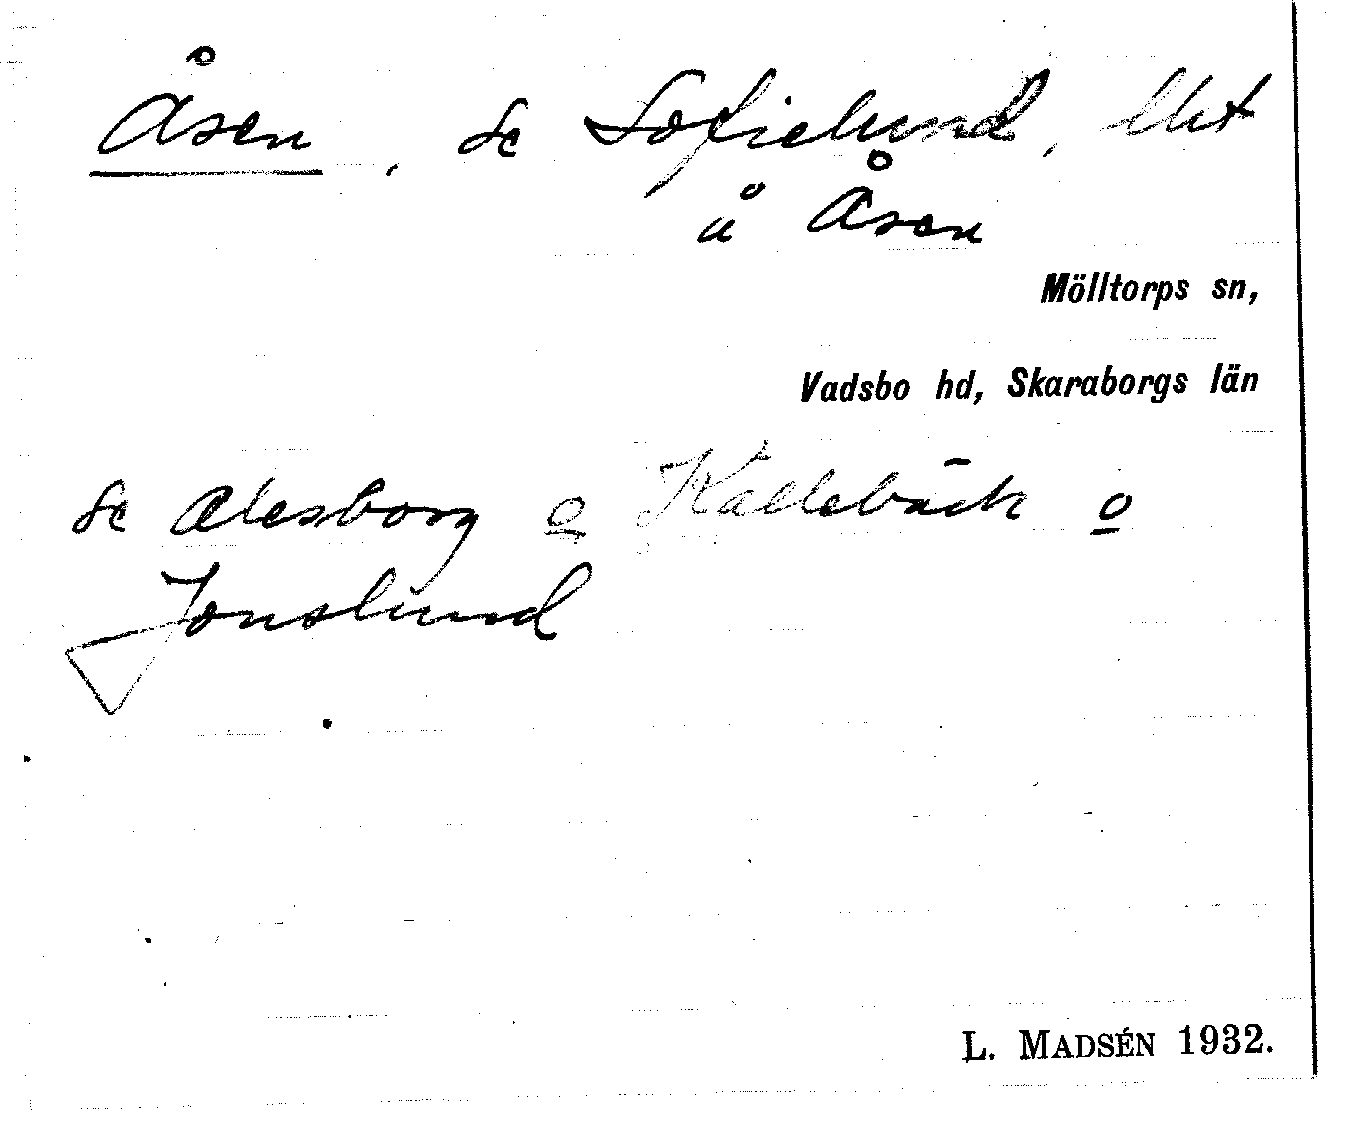 Åsen, se Sofielund, Ut
å Åsen
Mölltorps sn,
Vadsbo hd, Skaraborgs län
se Alesborg o Källebäck o
Jonslund
L. MADSÉN 1932.